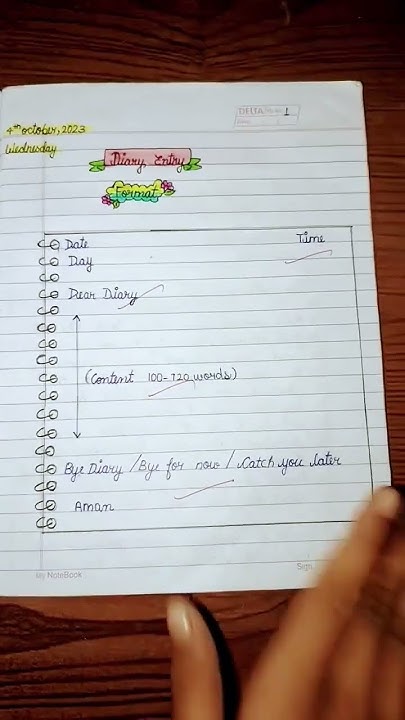 DELTA Pg No. 1
Date
4th october, 2023
Wednesday
Diary Entry
Format
Date Time
Day
Dear Diary
(Content 100-120 words)
Bye Diary / Bye for now / Catch you later
Aman
My NoteBook Sign